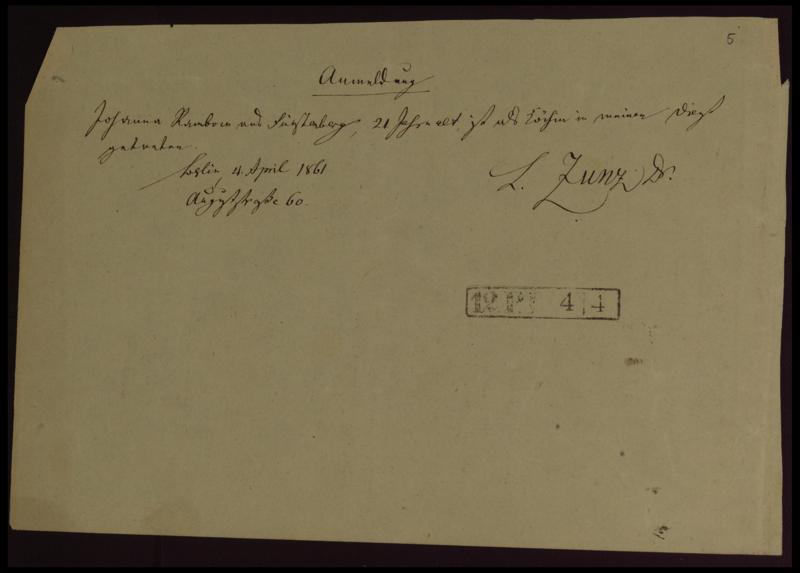 5
Anmeldung
Johanna Rambow aus Fürstenberg, 21 Jahre alt, ist als Köchin in meinen Dienst
getreten.
Berlin 4. April 1861
Auguststraße 60.
L. Zunz Dr.
4 4